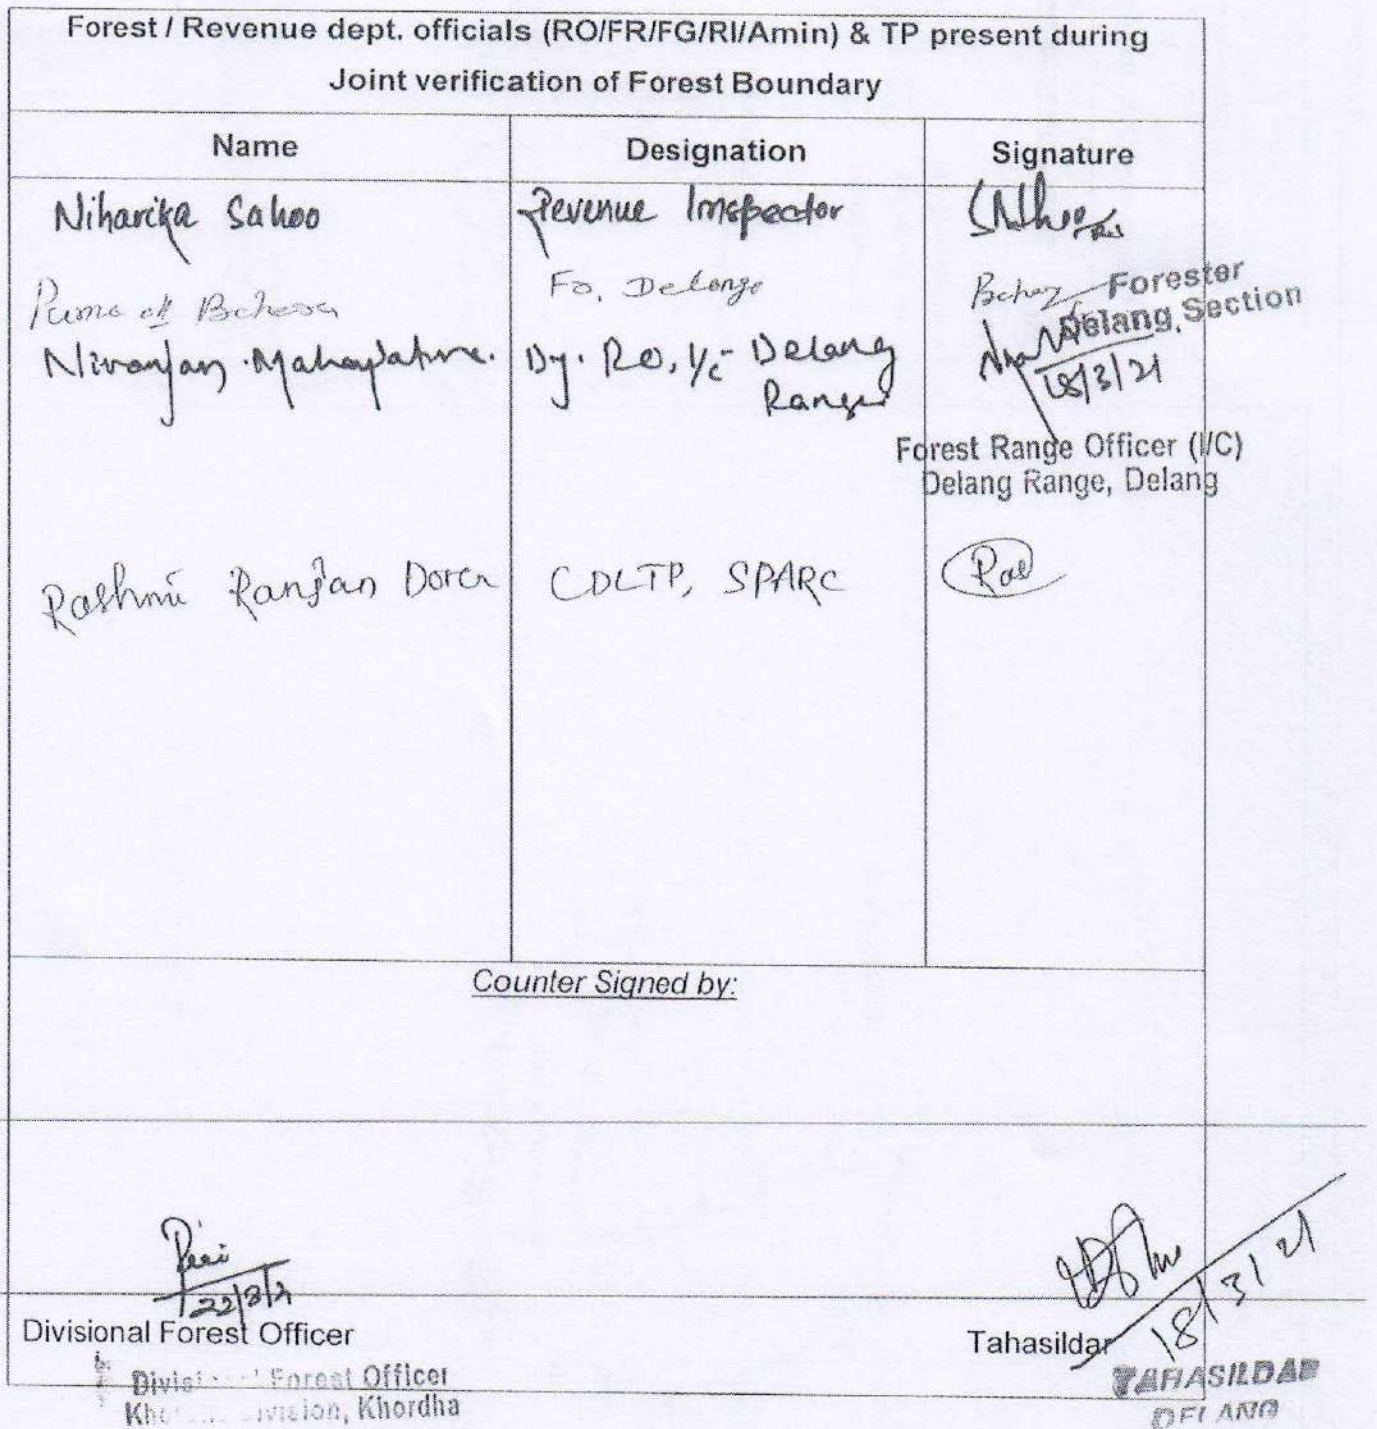 Forest / Revenue dept. officials (RO/FR/FG/RI/Amin) & TP present during
Joint verification of Forest Boundary
Name Designation Signature
Niharika Sahoo Revenue Inspector
Behera Fo, Delange
Forester
Delang Section
Niranjan Mahapatra. Dy. RO, I/c- Delang
Range
18/3/21
Forest Range Officer (I/C)
Delang Range, Delang
Rashmi Ranjan Dora CDLTP, SPARC
Counter Signed by:
22/3/21
18/3/21
Divisional Forest Officer Tahasildar
Forest Officer
Khordha
TAHASILDAR
DELANG